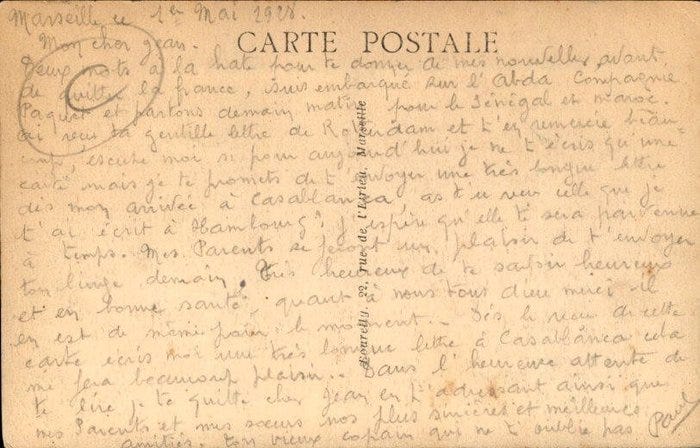 Marseille le 1er Mai 1928.
Mon cher Jean.
CARTE POSTALE
Deux mots à la hate pour te donner de mes nouvelles avant
de quitter la france, suis embarqué sur l'Abda Compagnie
Paquet et partons demain matin pour le Sénégal et maroc.
ai reçu ta gentille lettre de Rotterdam et t'en remercie biau-
coup, escuse moi si pour aujourd'hui je ne t'écris qu'une
carte mais je te promets de t'envoyer une très longue lettre
dès mon arrivée à Casablanca, as tu reçu celle que je
t'ai écrit à Hambourg, j'espère qu'elle te sera parvenue
à temps. Mes Parents se feront un plaisir de t'envoyer
ton linge demain. Très heureux de te savoir heureux
et en bonne santé, quant à nous tous dieu merci il
en est de même pour le moment. Dés le reçu de cette
carte écris moi une très longue lettre à Casablanca cela
me fera beaucoup plaisir. Dans l'heureuse attente de
te lire je te quitte cher Jean en t'adressant ainsi que
mes Parents et mes sœurs nos plus sincères et meilleures
amitiés. Ton vieux copain qui ne t'oublie pas
Paul
22, rue de Marseille